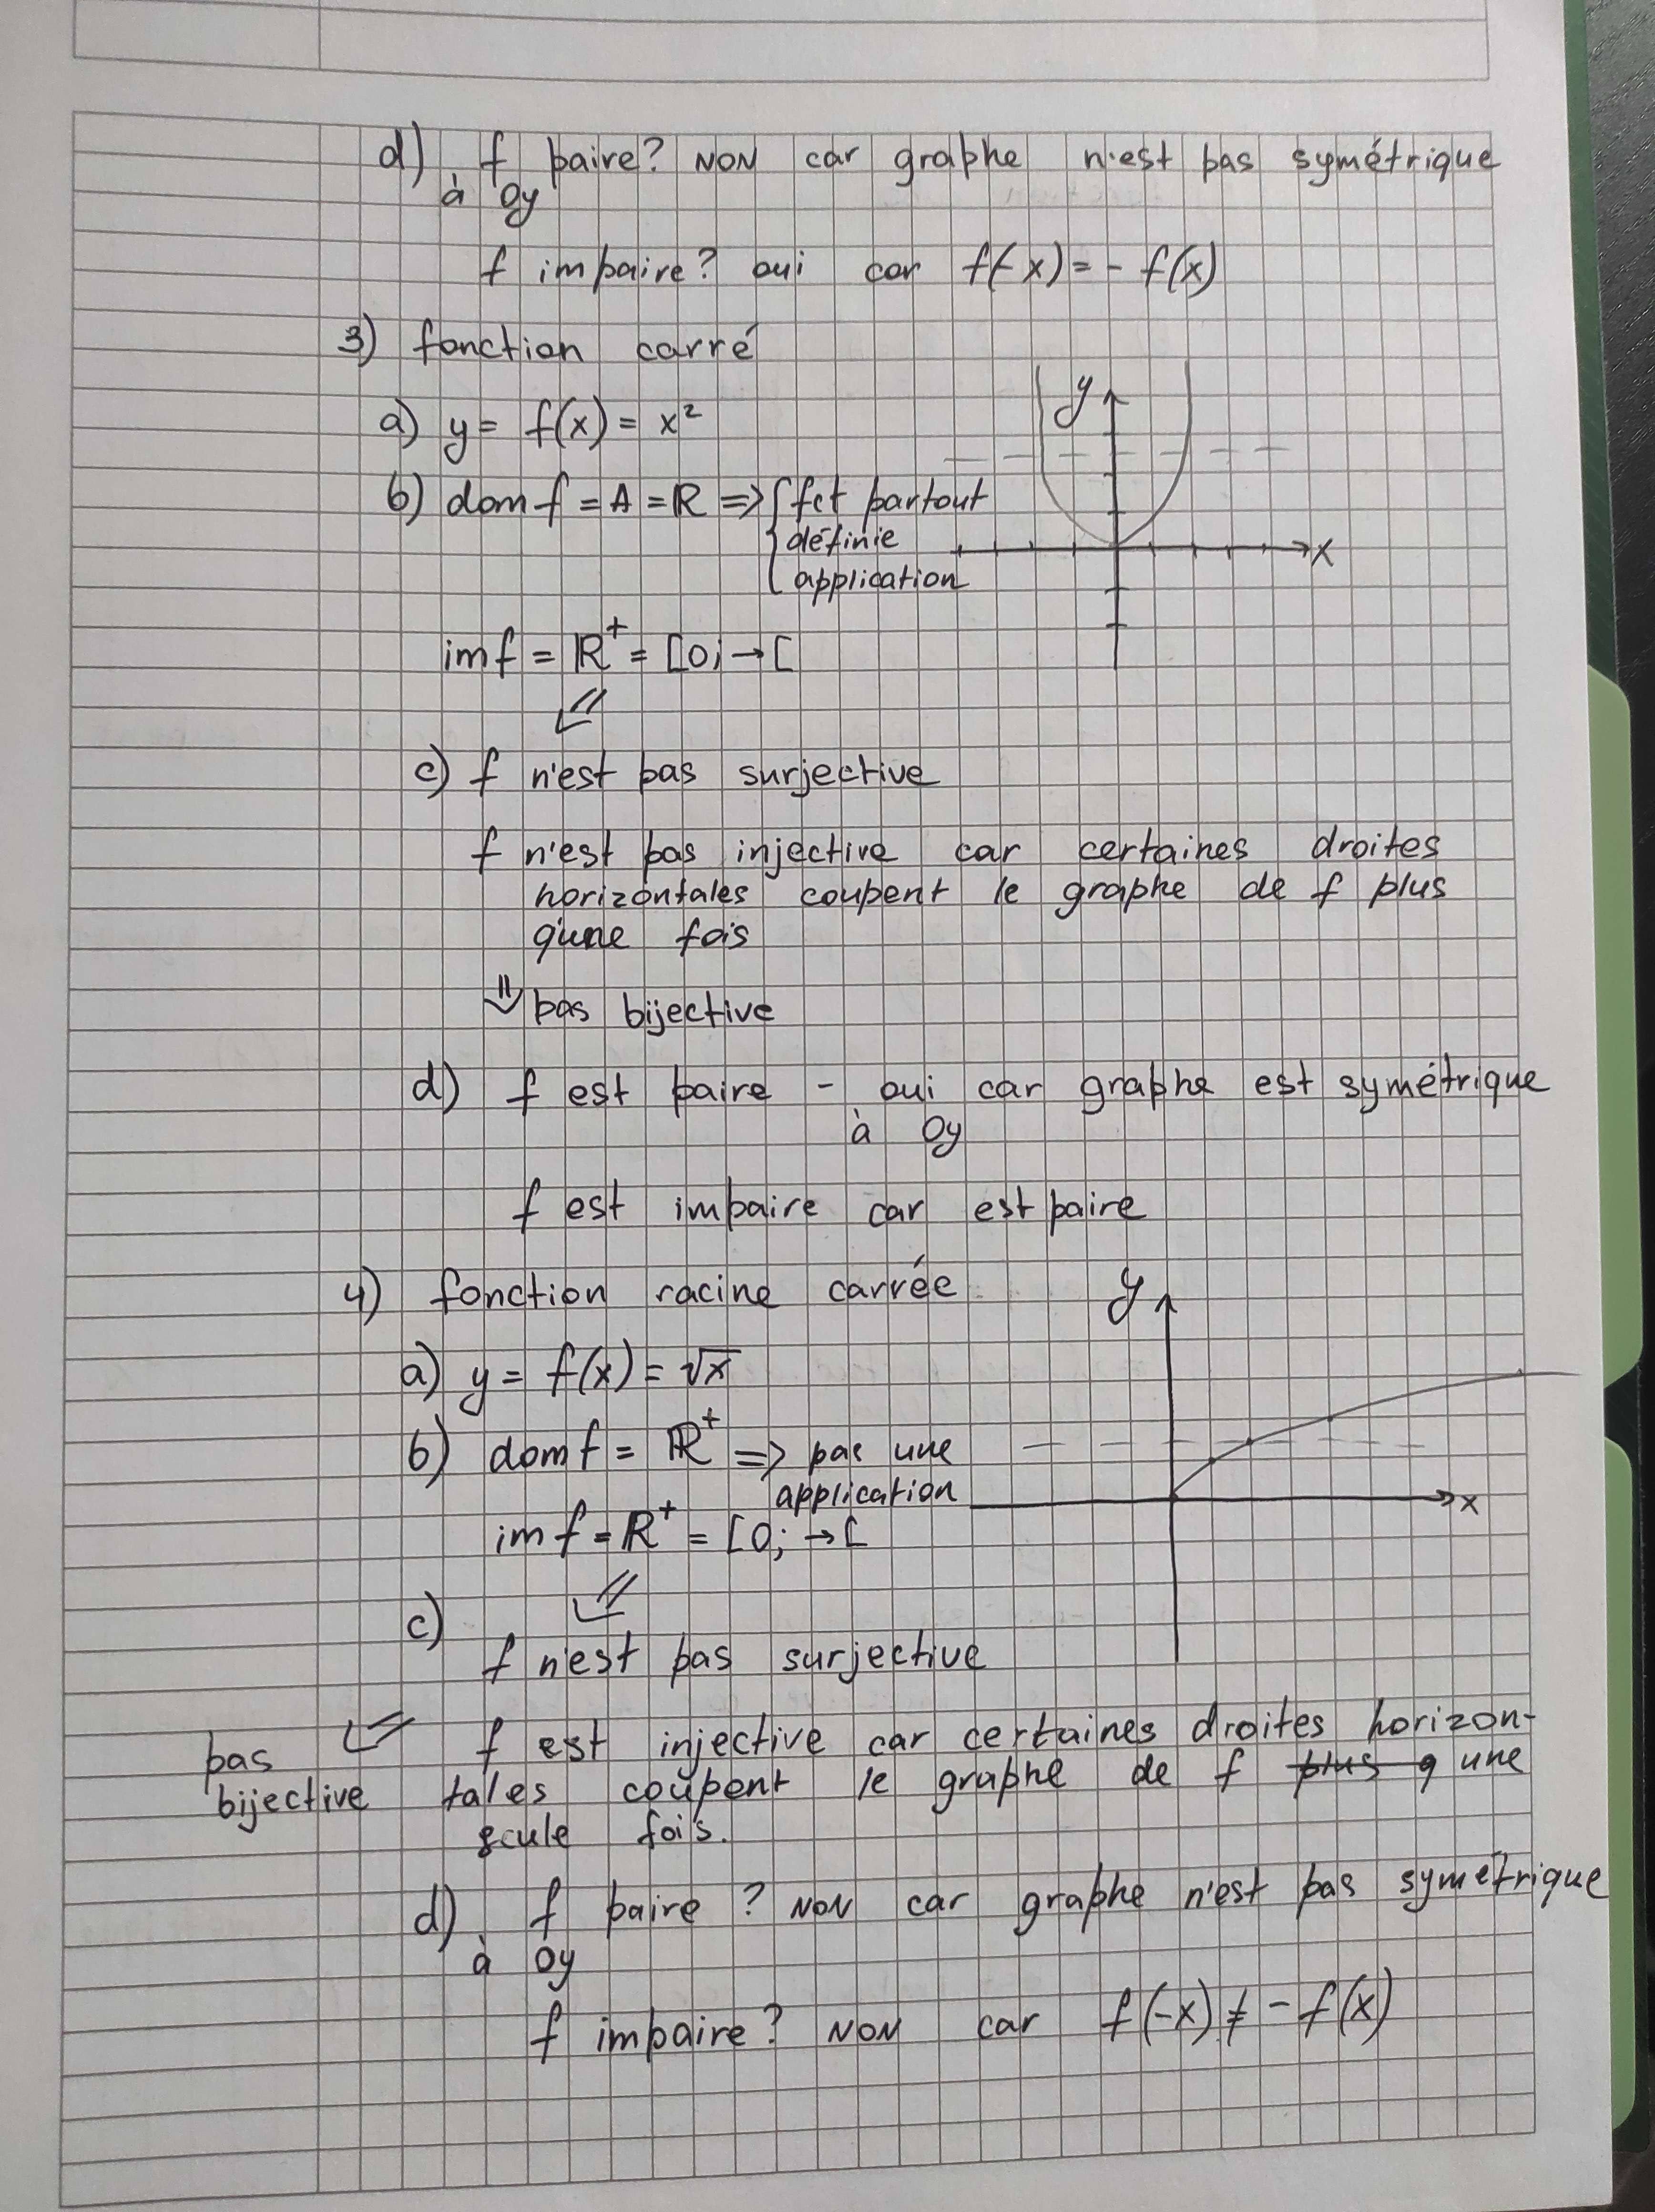 d) f paire? NON car graphe n'est pas symétrique
à Oy
f impaire? oui car f(-x) = - f(x)
3) fonction carré
a) y = f(x) = x²
y
b) dom f = A = ℝ => { fct partout
définie
application
x
im f = ℝ⁺ = [0; → [
⇙
c) f n'est pas surjective
f n'est pas injective car certaines droites
horizontales coupent le graphe de f plus
q'une fois
⇓ pas bijective
d) f est paire - oui car graphe est symétrique
à Oy
f est impaire car est paire
4) fonction racine carrée
y
a) y = f(x) = √x
b) dom f = ℝ⁺ => pas une
application
x
im f = ℝ⁺ = [0; → [
⇙
c)
f n'est pas surjective
pas ⇙ f est injective car certaines droites horizon-
bijective tales coupent le graphe de f plus q une
seule fois.
d) f paire ? NON car graphe n'est pas symétrique
à Oy
f impaire? NON car f(-x) ≠ - f(x)